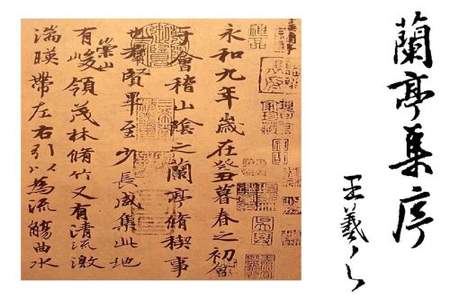 蘭亭集序
王羲之
永和九年歲在癸丑暮春之初會
于會稽山陰之蘭亭脩稧事
也羣賢畢至少長咸集此地
有崇山峻領茂林脩竹又有清流激
湍暎帶左右引以為流觴曲水